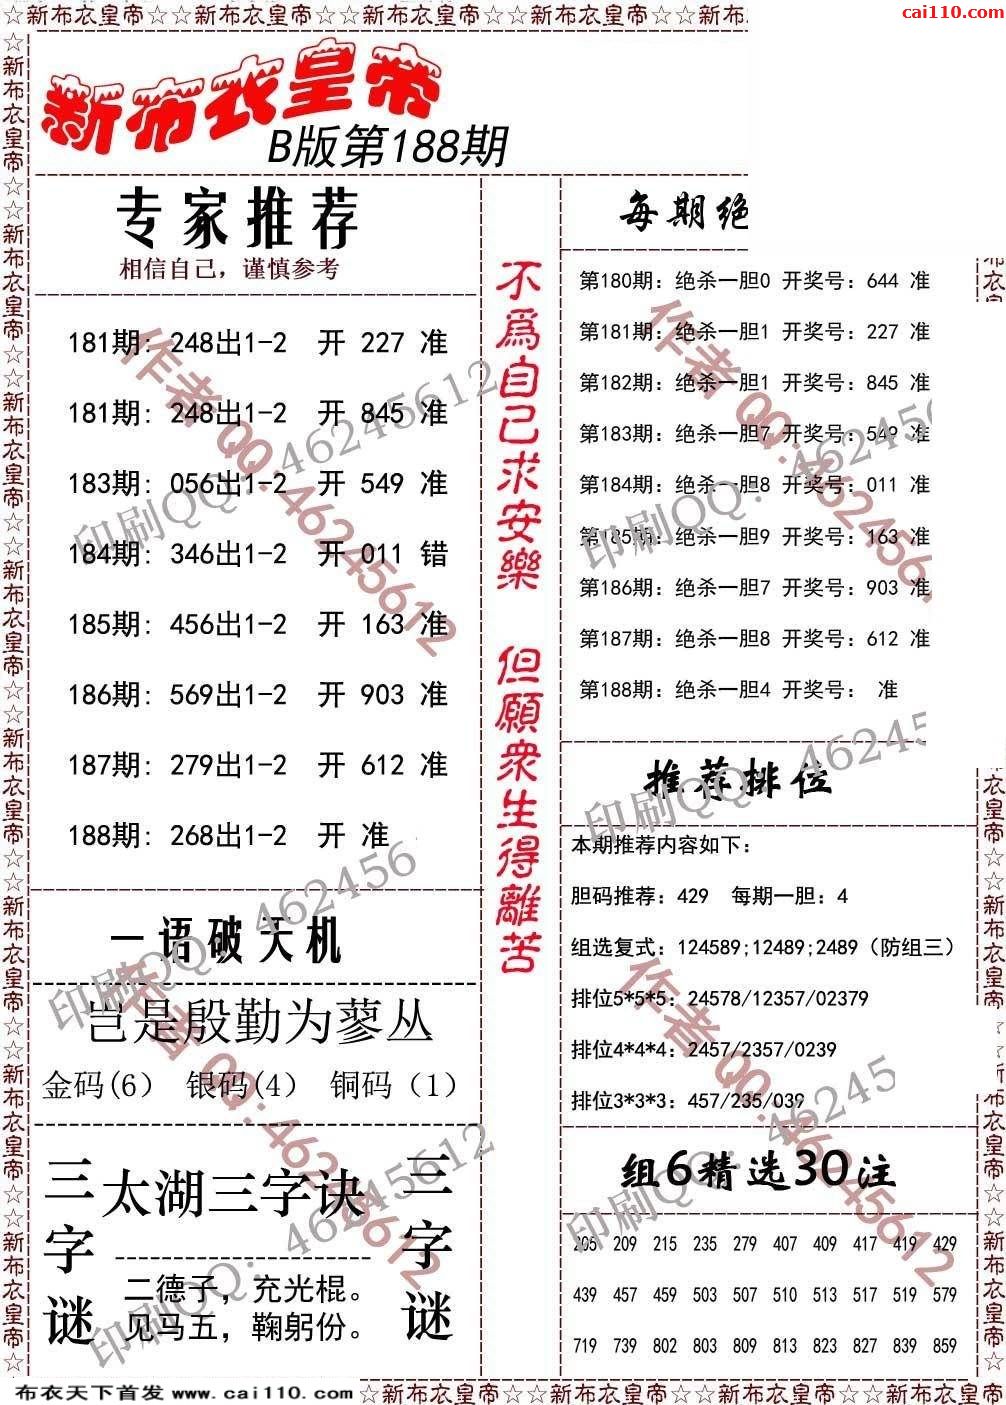 ☆新布衣皇帝☆☆新布衣皇帝☆☆新布衣皇帝☆☆新布衣皇帝☆☆新布
cai110.com
新布衣皇帝
B版第188期
专家推荐
相信自己，谨慎参考
181期: 248出1-2 开 227 准
181期: 248出1-2 开 845 准
183期: 056出1-2 开 549 准
184期: 346出1-2 开 011 错
185期: 456出1-2 开 163 准
186期: 569出1-2 开 903 准
187期: 279出1-2 开 612 准
188期: 268出1-2 开 准
一语破天机
岂是殷勤为蓼丛
金码(6） 银码(4） 铜码（1）
三字谜
太湖三字诀
二德子，充光棍。
见马五，鞠躬份。
三字谜
不爲自己求安樂 但願衆生得離苦
每期绝
第180期: 绝杀一胆0 开奖号: 644 准
第181期: 绝杀一胆1 开奖号: 227 准
第182期: 绝杀一胆1 开奖号: 845 准
第183期: 绝杀一胆7 开奖号: 549 准
第184期: 绝杀一胆8 开奖号: 011 准
第185期: 绝杀一胆9 开奖号: 163 准
第186期: 绝杀一胆7 开奖号: 903 准
第187期: 绝杀一胆8 开奖号: 612 准
第188期: 绝杀一胆4 开奖号: 准
推荐排位
本期推荐内容如下:
胆码推荐: 429 每期一胆: 4
组选复式: 124589;12489;2489（防组三）
排位5*5*5: 24578/12357/02379
排位4*4*4: 2457/2357/0239
排位3*3*3: 457/235/039
组6精选30注
205 209 215 235 279 407 409 417 419 429
439 457 459 503 507 510 513 517 519 579
719 739 802 803 809 813 823 827 839 859
作者 QQ: 46245612
印刷QQ: 46245612
布衣天下首发 www.cai110.com
☆新布衣皇帝☆☆新布衣皇帝☆☆新布衣皇帝☆☆新布衣皇帝☆